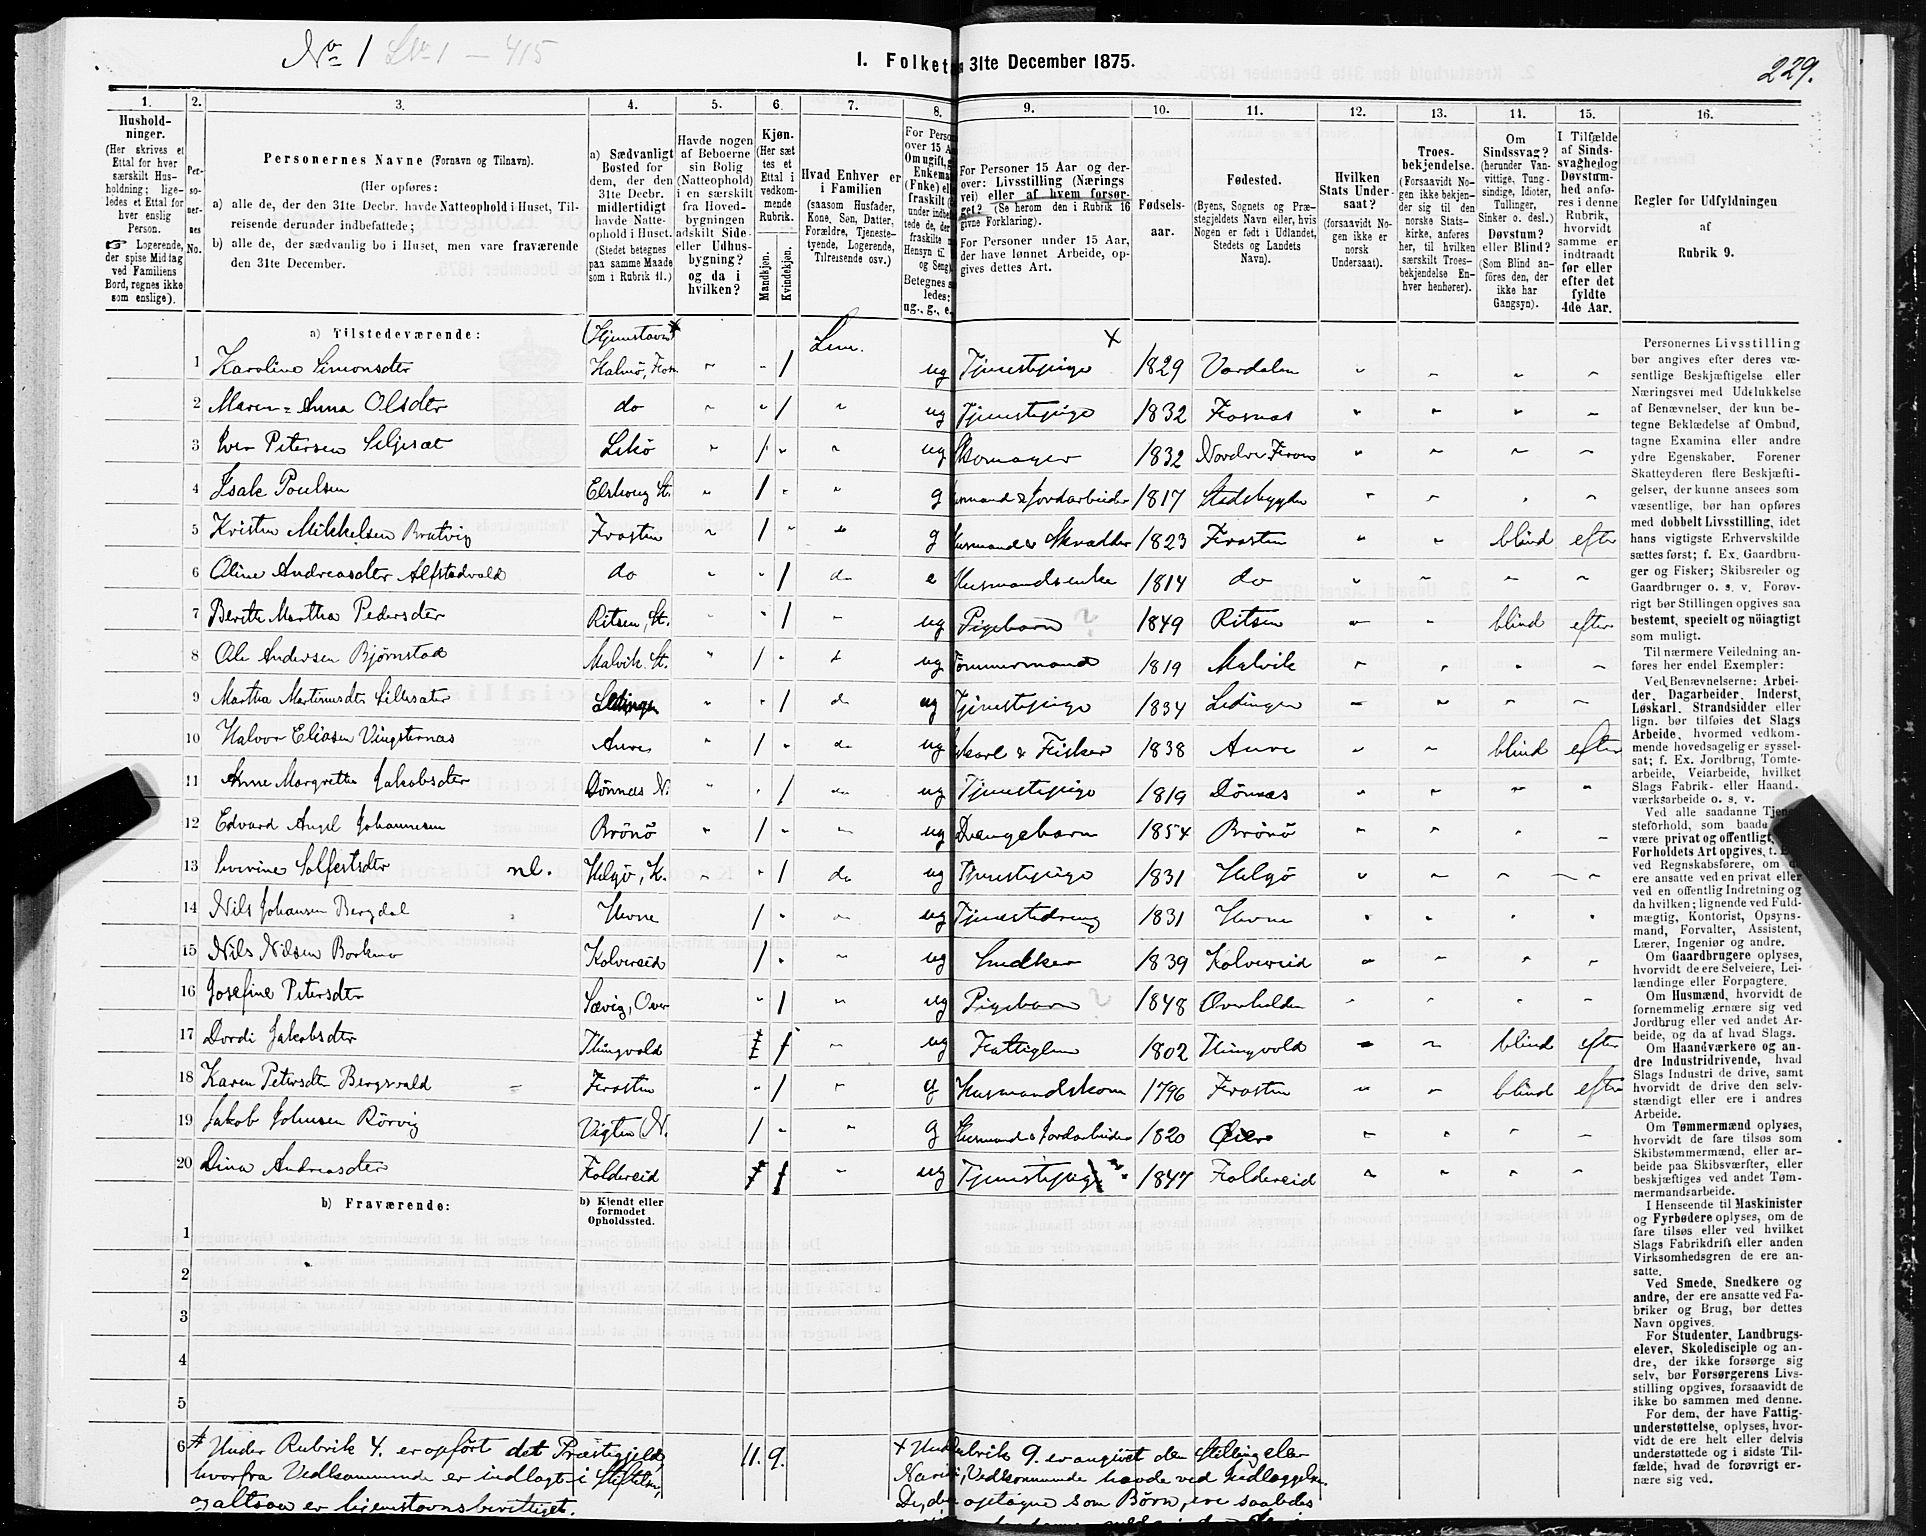 No 1
Lb. 1 — 415
1. Folket 31te December 1875.
229.
1. 2. 3. 4. 5. 6. 7. 8. 9. 10. 11. 12. 13. 14. 15. 16.
Hushold-
ninger.
(Her skrives et
Ettal for hver
særskilt Hus-
holdning; lige-
ledes et Ettal for
hver enslig
Person.
☞ Logerende,
der spise Middag
ved Familiens
Bord, regnes ikke
som enslige).
Per-
so-
ner-
nes
No.
Personernes Navne (Fornavn og Tilnavn).
(Her opføres:
a) alle de, der den 31te Decbr. havde Natteophold i Huset, Til-
reisende derunder indbefattede;
b) alle de, der sædvanlig bo i Huset, men vare fraværende
den 31te December.
a) Sædvanligt
Bosted for
dem, der den
31te Decbr.
midlertidigt
havde Natte-
ophold i Huset.
(Stedet betegnes
paa samme Maade
som i Rubrik 11.)
Havde nogen
af Beboerne
sin Bolig
(Natteophold)
i en særskilt
fra Hoved-
bygningen
adskilt Side-
eller Udhus-
bygning?
og da i
hvilken?
Kjøn.
(Her sæt
tes et
Ettal i
vedkom-
mende
Rubrik.)
Mandkjøn.
Kvindekjøn.
Hvad Enhver er
i Familien
(saasom Husfader,
Kone, Søn, Datter,
Forældre, Tjeneste-
tyende, Logerende,
Tilreisende osv.)
For Perso
over 15 A
Om ugift,
Enkema
(Fnke) el
fraskilt
under indb
tede de, der
fraskilte
Hensyn ti
og Seng
Betegnes s
ledes:
ug., g., e.
For Personer 15 Aar og der-
over: Livsstilling (Nærings
vei) eller af hvem forsør-
get? (Se herom den i Rubrik 16
givne Forklaring).
For Personer under 15 Aar,
der have lønnet Arbeide, op-
gives dettes Art.
Fødsels-
aar.
Fødested.
(Byens, Sognets og Præ-
stegjeldets Navn eller, hvis
Nogen er født i Udlandet,
Stedets og Landets
Navn).
Hvilken
Stats Under-
saat?
(forsaavidt No-
gen ikke er
norsk
Undersaat).
Troes-
bekjendelse.
(Forsaavidt No-
gen ikke bekjen-
der sig til den
norske Stats-
kirke, anføres
her, til hvilken
særskilt Troes-
bekjendelse En-
hver henhører).
Om
Sindssvag?
(herunder Van-
vittige, Tung-
sindige, Idioter,
Tullinger,
Sinker o. desl.)
Døvstum?
eller Blind?
(Som Blind an-
føres den, der
ikke har
Gangsyn).
I Tilfælde
af Sinds-
svaghed og
Døvstum-
hed anfø-
res i denne
Rubrik,
hvorvidt
samme er
indtraadt
før eller
efter det
fyldte
4de Aar.
Regler for Udfyldningen
af
Rubrik 9.
a) Tilstedeværende: (Hjemstavn) Lem. ×
1 Karoline Simonsdter Halmø, Fosn " " 1 ug Tjenestepige 1829 Værdalen " " " "
2 Maren-Anna Olsdter do " " 1 " ug Tjenestepige 1832 Fosnæs " " " "
3 Iver Petersen Seljesæt Lekø " 1 " " ug Skomager 1832 Nordre Fron " " " "
4 Isak Poulsen Elshoug St. " 1 " " g Husmand & Jordarbeider 1817 Stadsbygden " " " "
5 Kristen Mikkelsen Bratvig Frosten " 1 " do g Husmand & Skrædder 1823 Frosten " " blind efter
6 Oline Andreasdter Alfstadvold do " " 1 do e Husmandsenke 1814 do " " " "
7 Berith Martha Pedersdter Ritsen, St. " 1 " ug Pigebarn 1849 Ritsen " " blind efter
8 Ole Andersen Bjørnstad Malvik St. " 1 " do ug Tømmermand 1819 Malvik " " " "
9 Martha Martinusdt Lillesæter " " 1 do ug Tjenestepige 1834 Ledingen " " " "
10 Halvor Eliasen Vingsternæs Aure " 1 " do ug Karl & Fisker 1838 Aure " " blind efter
11 Anne Margrethe Jakobsdter Dønnæs N. " " 1 do ug Tjenestepige 1819 Dønnæs " " " "
12 Edvard Angel Johannesen Brønø " 1 " " ug Drengebarn 1854 Brønø " " " "
13 Severine Solfestsdter nl. Helgø, K. " " 1 do ug Tjenestepige 1831 Helgø " " " "
14 Nils Johansen Bergdal Hevne 1 " " ug Tjenestedreng 1831 Hevne " " " "
15 Nils Nilsen Borkmo Kolvereid 1 " " ug Snedker 1839 Kolvereid " " " "
16 Josefine Petersdter Sævig, Over " 1 " ug Pigebarn 1848 Overhalden " " " "
17 Dordi Jakobsdter Thingvold 1 " ug Fattiglem 1802 Thingvold " " blind efter
18 Karen Petersdtr Bergsvald Frosten " 1 " g Husmandskone 1796 Frosten " " blind efter
19 Jakob Johnsen Rørvig Vigten N. 1 " " g Husmand & Jordarbeider 1820 " " " "
20 Dina Andreasdter Foldereid 1 " ug Tjenestepige 1847 Foldereid " " " "
b) Fraværende: b) Kjendt eller
formodet
Opholdssted.
1
2
3
4
5
6
Under Rubrik 4. er opført det Præstegjeld,
hvorfra Vedkommende er indlagt i Stiftelsen,
og altsaa er hjemstavnsberettiget.
11. 9.
× Und Rubrik 9. er angivet den Stilling eller
Næri, Vedkommende havde ved Indlæggelsen.
De, der optagne som Børn, ere saaledes
Personernes Livsstilling
bør angives efter deres væ-
sentlige Beskjæftigelse eller
Næringsvei med Udelukkelse
af Benævnelser, der kun be-
tegne Beklædelse af Ombud,
tagne Examina eller andre
ydre Egenskaber. Forener
Skatteyderen flere Beskjæfti-
gelser, der kunne ansees som
væsentlige, bør han opføres
med dobbelt Livsstilling, idet
hans vigtigste Erhvervskilde
sættes først; f. Ex. Gaardbru-
ger og Fisker; Skibsreder og
Gaardbruger o. s. v. Forøv-
rigt bør Stillingen opgives saa
bestemt, specielt og nöiagtigt
som muligt.
Til nærmere Veiledning an-
føres her endel Exempler:
Ved Benævnelserne: Arbei-
der, Dagarbeider, Inderst,
Løskarl, Strandsidder eller
lign. bør tilføies det Slags
Arbeide, hvormed vedkom-
mende hovedsagelig er syssel-
sat; f. Ex. Jordbrug, Tomte-
arbeide, Veiarbeide, hvilket
Slags Fabrik- eller Haand-
værksarbeide o. s. v.
Ved alle saadanne Tjene
steforhold, som baade
være privat og offentligt,
Forholdets Art opgives, t.
ved Regnskabsførere, om
ere ansatte ved en privat eller
ved en offentlig Indretning og
da hvilken; lignende ved Fuld-
mægtig, Kontorist, Opsyns-
mand, Forvalter, Assistent,
Lærer, Ingeniør og andre.
Om Gaardbrugere oplyses,
hvorvidt de ere Selveiere, Lei-
lændinge eller Forpagtere.
Om Husmænd, hvorvidt de
fornemmelig ernære sig ved
Jordbrug eller ved andet Ar-
beide, og da af hvad Slags.
Om Haandværkere og an-
dre Industridrivende, hvad
Slags Industri de drive, samt
hvorvidt de drive den selv-
stændigt eller ere i andres
Arbeide.
Om Tømmermænd oplyses,
hvorvidt de fare tilsøs som
Skibstømmermænd, eller ar-
beide paa Skibsværfter, eller
beskjæftiges ved andet Tøm-
mermandsarbeide.
I Henseende til Maskinister
og Fyrbødere oplyses, om de
fare tilsøs eller ved hvilket
Slags Fabrikdrift eller anden
Virksomhedsgren de ere an-
satte.
Ved Smede, Snedkere og
andre, der ere ansatte ved Fa-
briker og Brug, bør dettes
Navn opgives.
For Studenter, Landbrugs-
elever, Skoledisciple og an-
dre, der ikke forsørge sig
selv, bør Forsørgerens Livs-
stilling opgives, forsaavidt de
ikke bo sammen med denne.
For dem, der have Fattig-
understøttelse, oplyses, hvor-
vidt de ere helt eller delvis
understøttede og i sidste Til-
fælde, hvad de forøvrigt er-
nære sig ved.